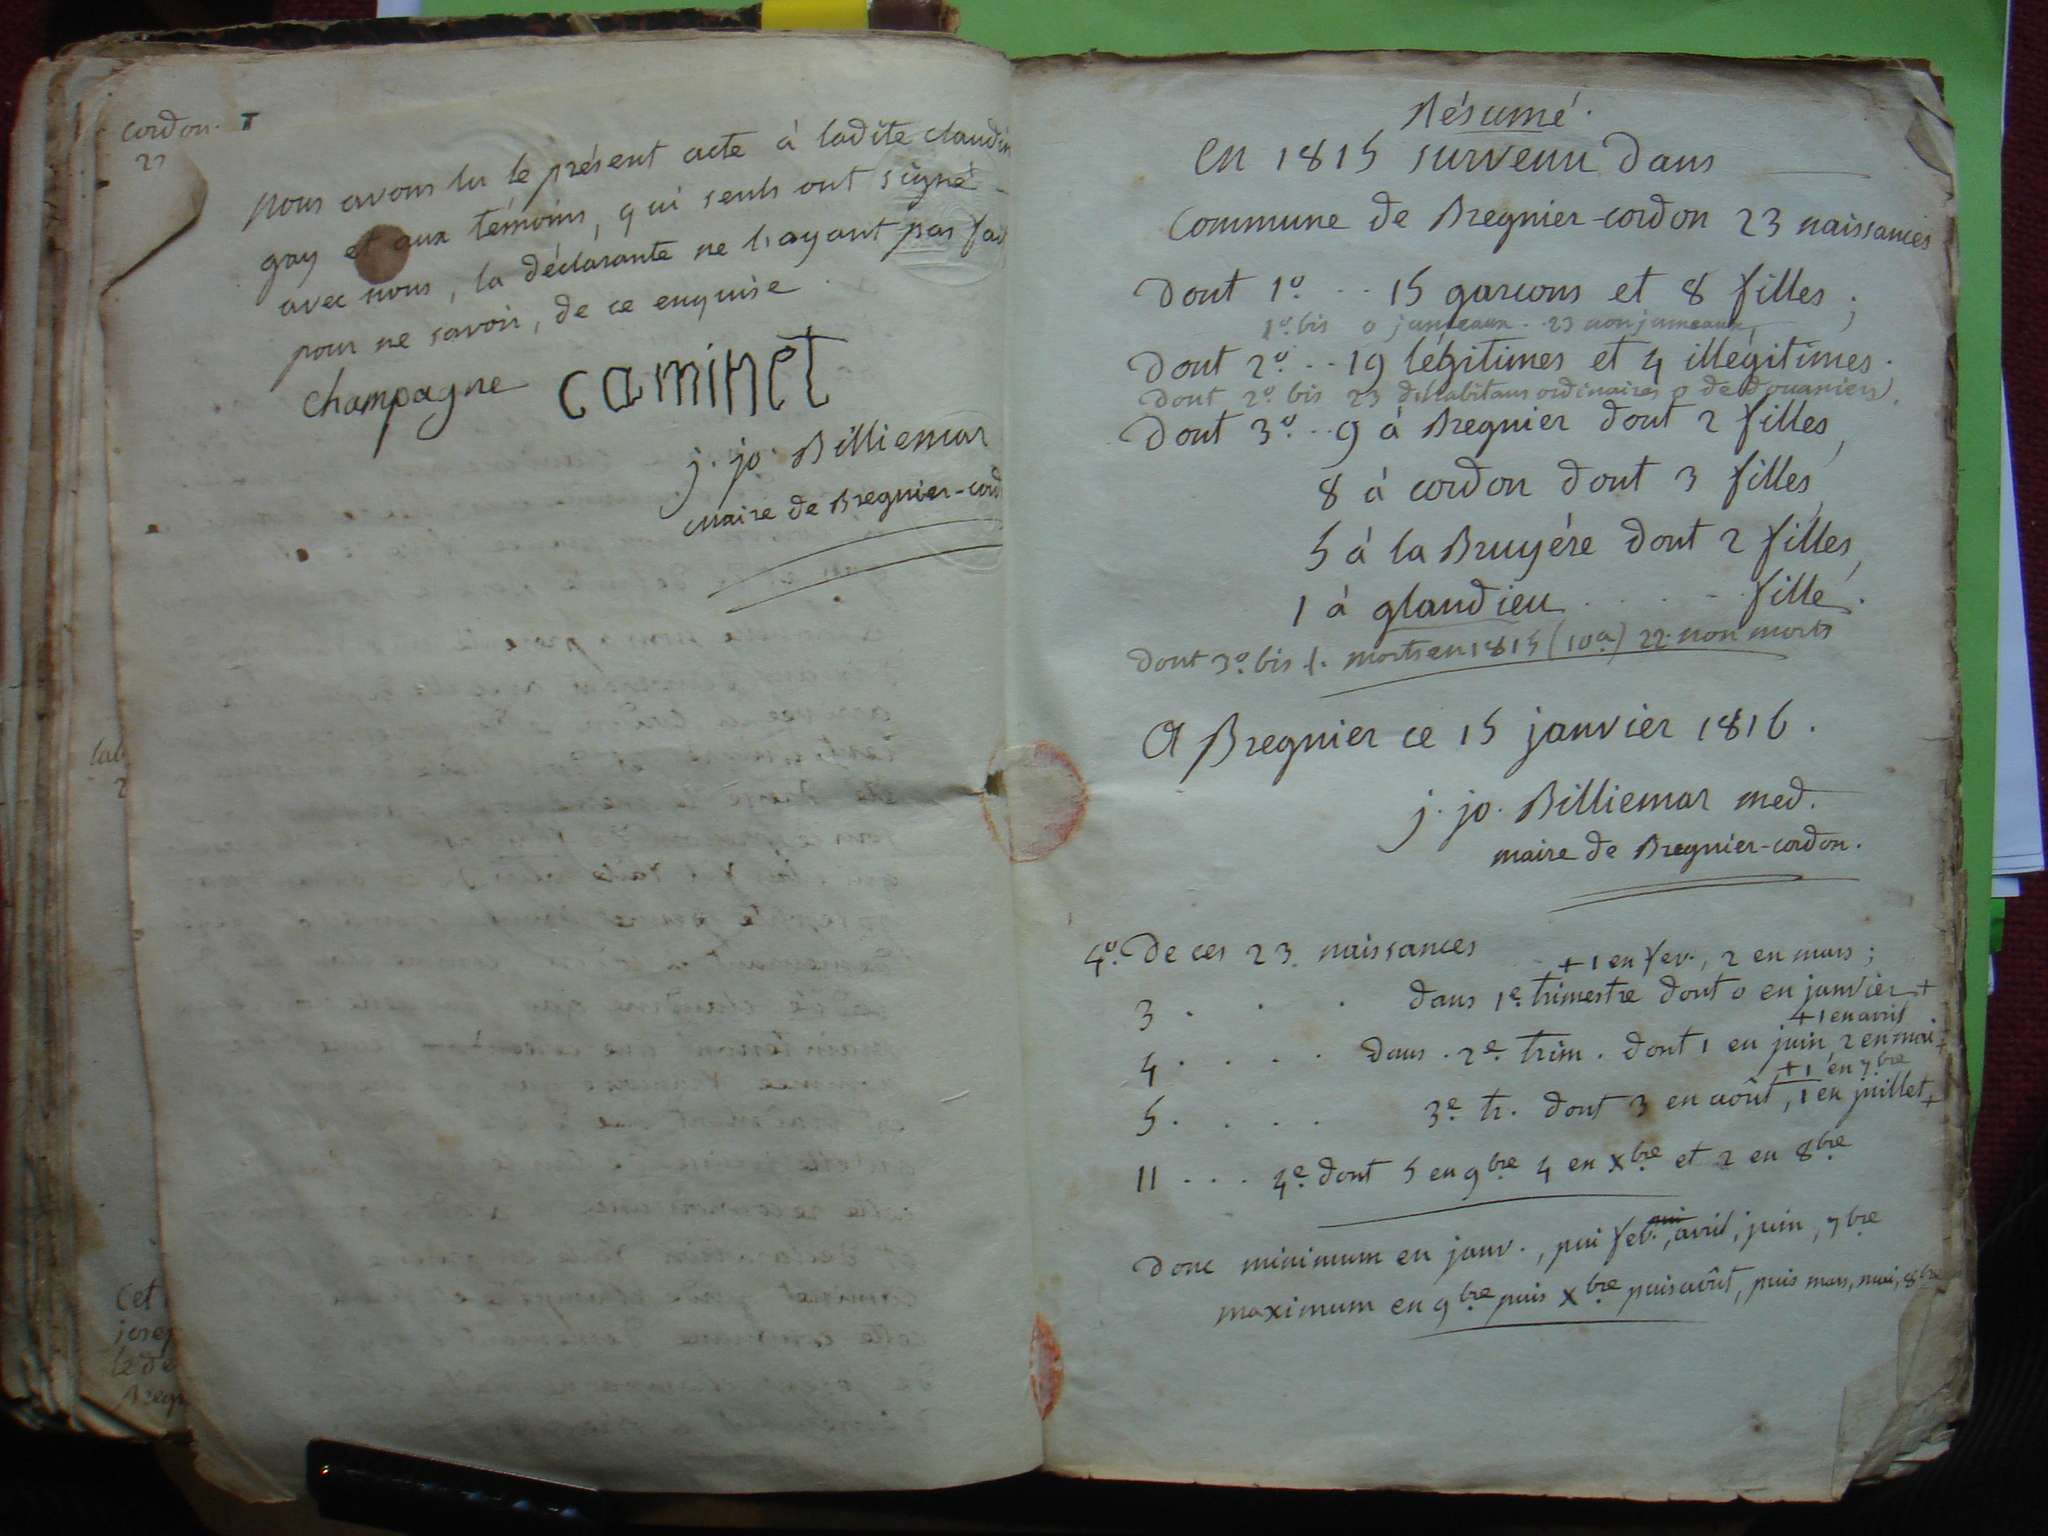 cordon. T
23
nous avons lu le présent acte à ladite claudin
gay et aux témoins, qui seuls ont signé
avec nous, la déclarante ne l'ayant pas fait
pour ne savoir, de ce enquise.
champagne caminet
j. jo. Billiemas
maire de Bregnier-cord
Cet
josep
le de
Bregn
Résumé.
En 1815 survenu dans
Commune de Bregnier-cordon 23 naissances
Dont 1º .. 15 garcons et 8 filles ;
1º bis 0 jumeaux .. 23 non jumeaux,
Dont 2º .. 19 légitimes et 4 illégitimes.
Dont 2º bis 23 d'habitans ordinaires 0 de douaniers.
Dont 3º .. 9 à Bregnier dont 2 filles,
8 à cordon dont 3 filles,
5 à la Bruyére dont 2 filles,
1 à glandieu . . . . fille.
Dont 3º bis 1. morts en 1815 (10a) 22 non morts
A Bregnier ce 15 janvier 1816.
j. jo. Billiemas med.
maire de Bregnier-cordon.
4º. De ces 23 naissances
+ 1 en fev., 2 en mars ;
3 . . . dans 1e trimestre dont 0 en janvier +
+ 1 en avril
4 . . . . dans . 2e trim . dont 1 en juin, 2 en mai +
+ 1 en 7bre
5 . . . . 3e tr. dont 3 en août, 1 en juillet +
11 . . . 4e dont 5 en 9bre 4 en Xbre et 2 en 8bre
Donc minimum en janv., pui feb., avril, juin, 7bre
maximum en 9bre puis Xbre puis août, puis mars, mai, 8bre